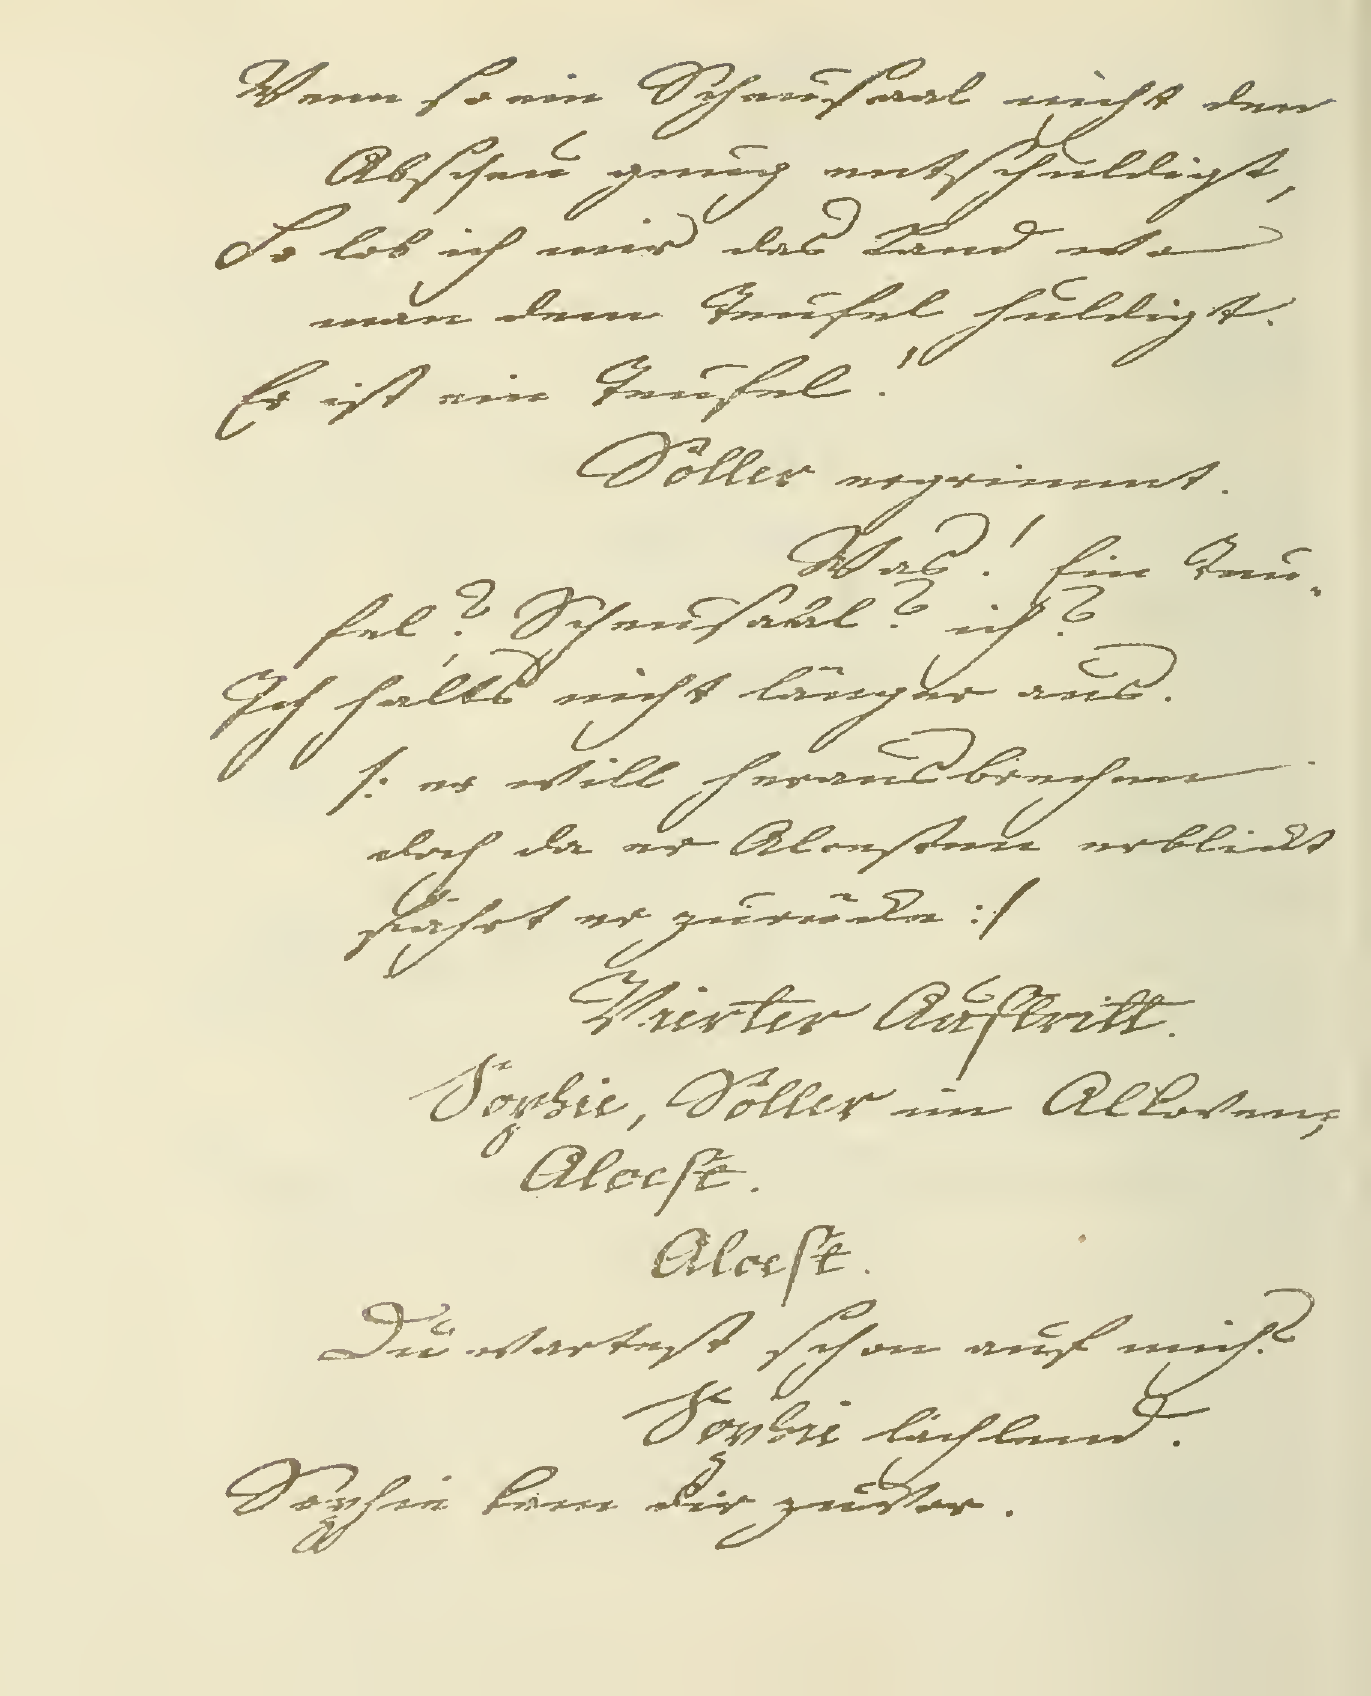 Wenn so ein Scheusaal nicht den
Abscheu genug entschuldigt,
So lob ich mir das Land wo
man dem Teufel huldigt.
Er ist ein Teufel!
Söller ergrimmt.
Was! Ein Teu-
fel? Scheusaal? ich?
Ich halts nicht länger aus.
/: er will herausbrechen
doch da er Alcesten erblickt
fährt er zurücke :/
Vierter Auftritt.
Sophie, Söller im Alkoven,
Alceste.
Alceste.
Du wartest schon auf mich?
Sophie lächlend.
Sophie kam dir zuvor.